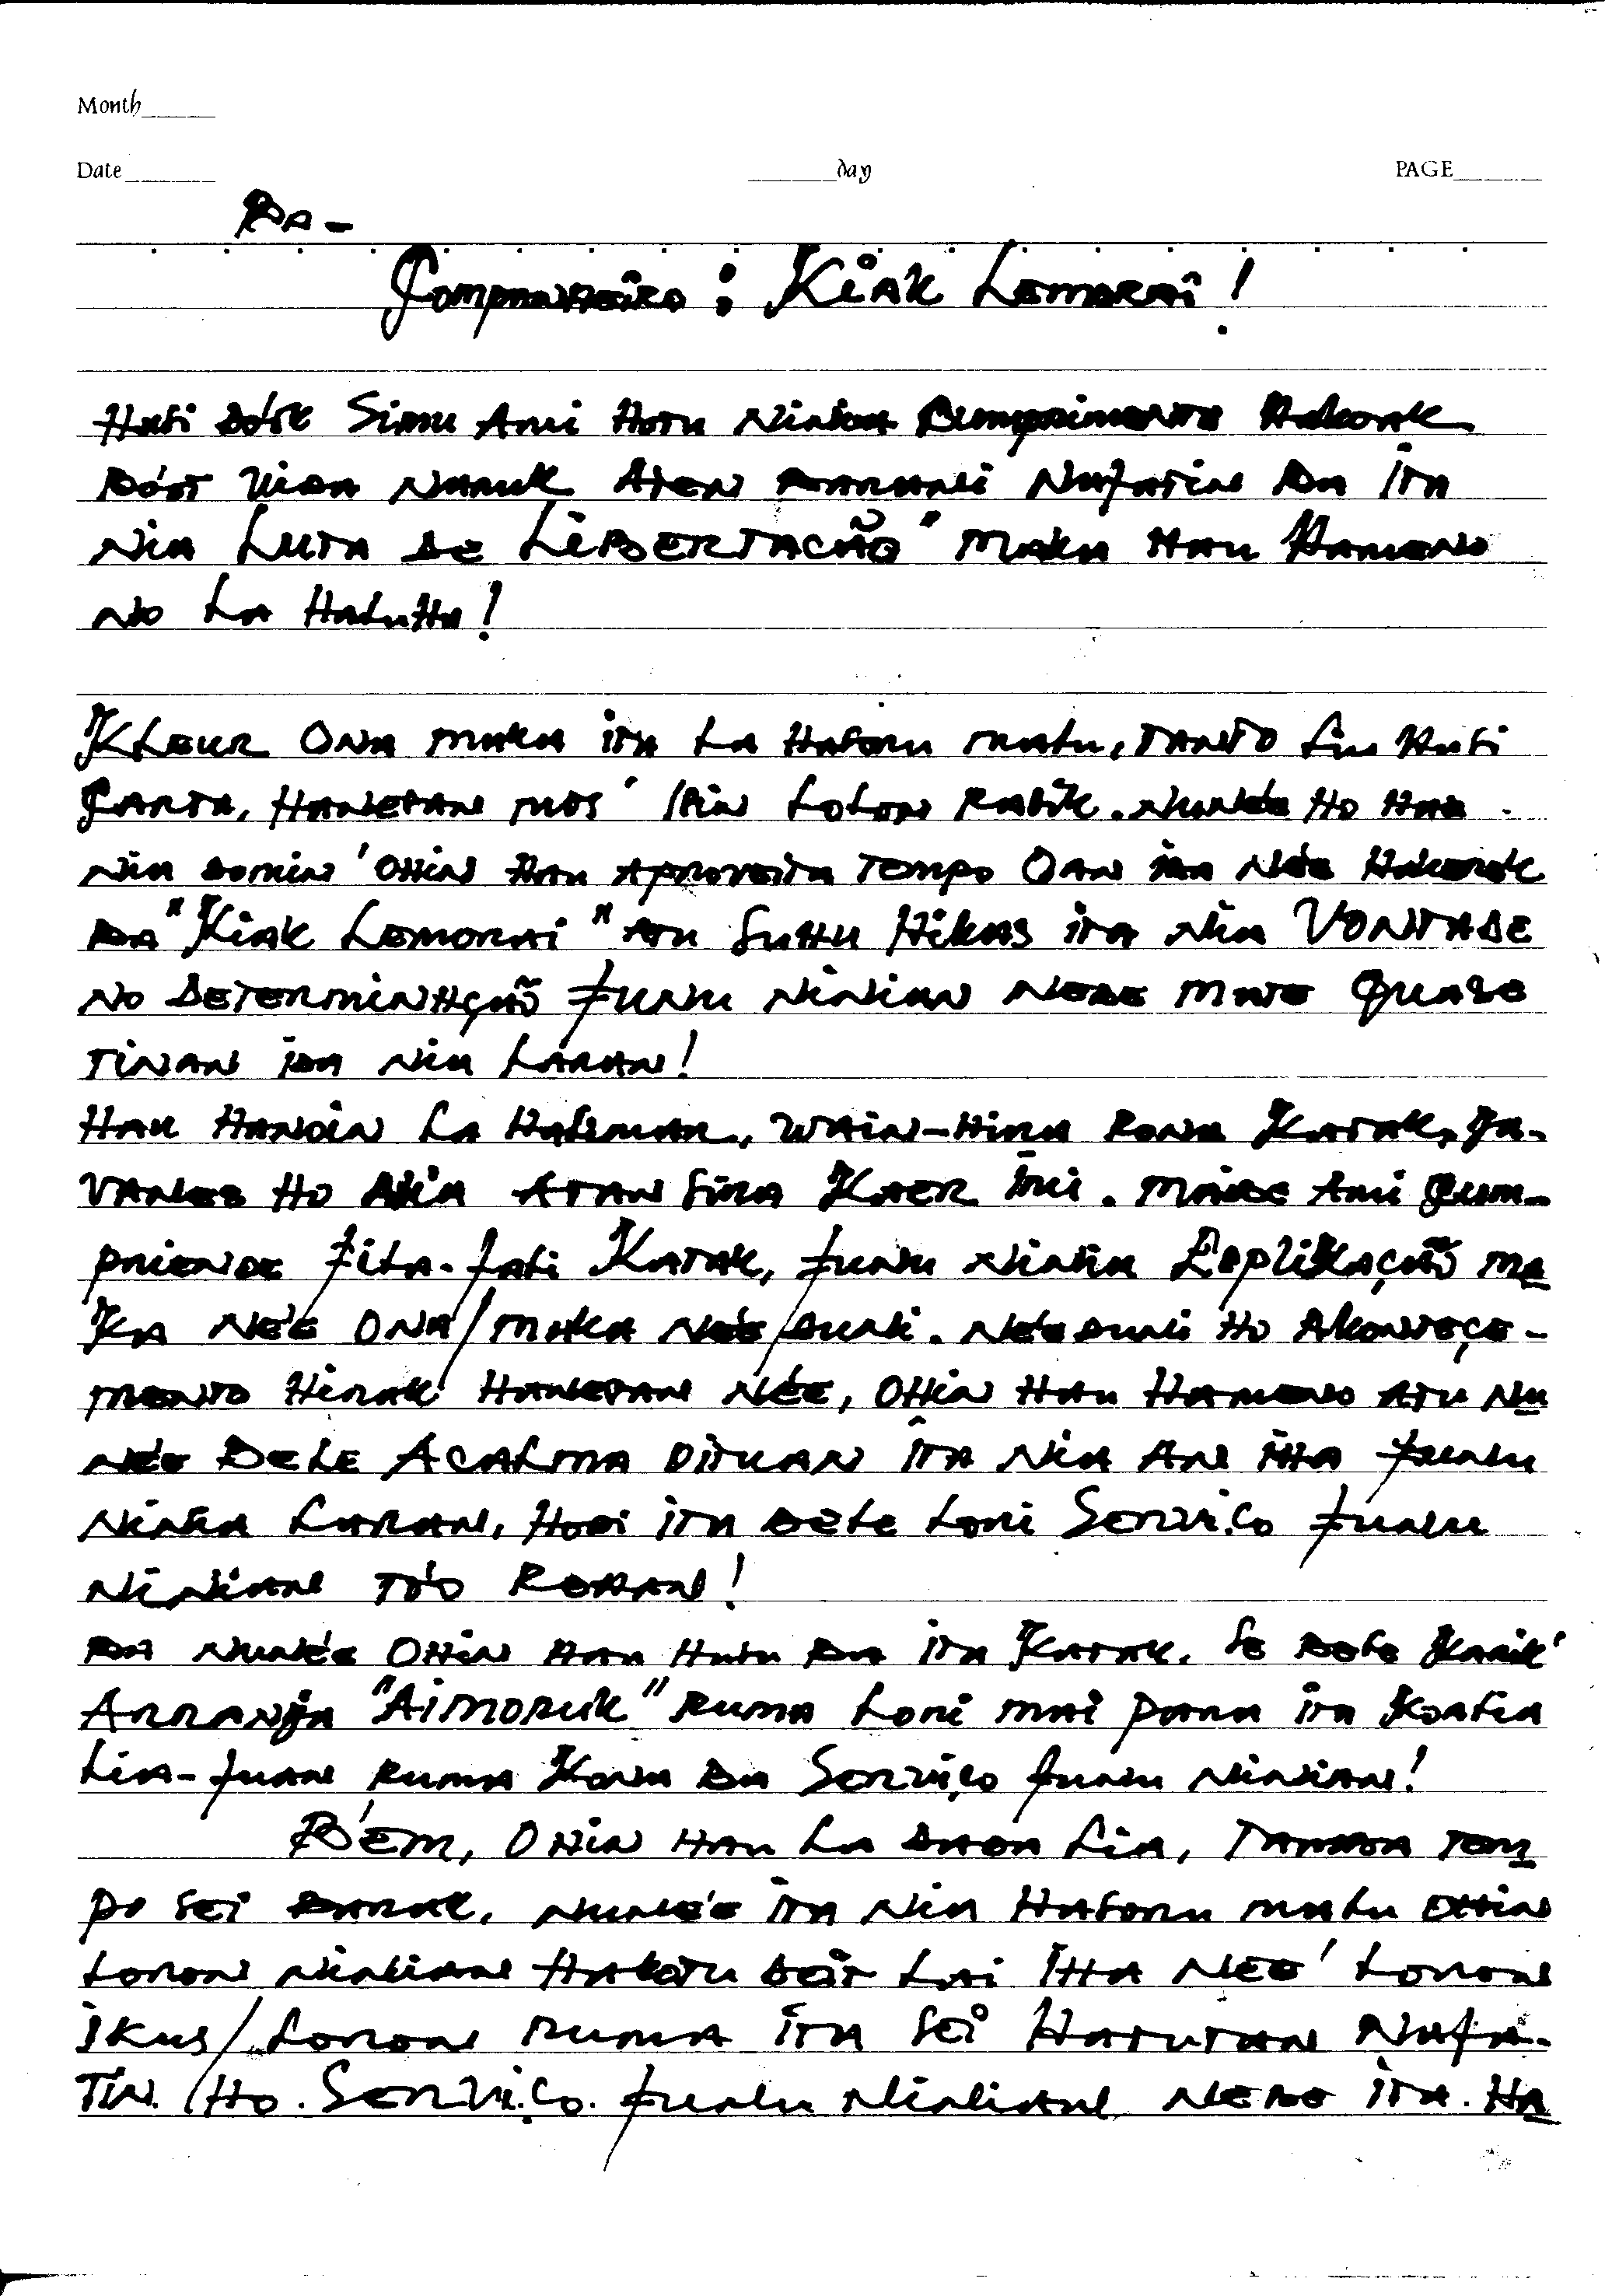 Month
Date day PAGE
Ba -
Companheiro : Kiak Lemorai !
Husi dók Simu Ami Hotu Ninian Cumprimento Hakoak
Bóót Vida Naruk Aten Barani Nafatin Ba ita
Nia Luta de Libertacão" maka Hau Hameno
No La Haluha!
Kleur Ona maka ita La Hasoru malu, Tanto liu Husi
Carta, Hanesan mos' Ibin Lolon Rasik. Nunée Ho Hau
Nia Domin' Ohin Hau Aproveita Tempo Oan ida Née Hakerek
Ba "Kiak Lemorai" Atu Suhu Hikas ita Nia Vontade
No Determinaçaõ Funu Ninian Nebe mate Quase
Tinan ida Nia Laran!
Hau Handin La Halimar, Wain-Hira Rona Katak, Ja-
vanes Ho Nia Atan Sira Kaer imi. Maibe Ami Com-
priende Fila-fali Katak, Funu Ninia Esplikaçaõ ma
Ka Née Ona/maka Née/Duni. Née Duni Ho Akonteçe-
mento Hirak Hanesan Née, Ohin Hau Hameno Atu Nu
Née Bele Acalma Oituan ita Nia An iha Funu
Ninia Laran, Hodi ita Bele Lori Serviço Funu
Ninian To'o Rohan!
Ba Nunée Ohin Hau Husu Ba ita Katak, Se Bele Karik'
Arranja "Aimoruk" Ruma Lori mai para ita Koalia
Lia-fuan Ruma Kona Ba Serviço funu Ninian!
Bém, Ohin Hau La Dada Lia, Tamba Tem
po sei Barak, Nunée ita Nia Hasoru malu Ohin
Loron Ninian Hakotu Deit Lai iha Née' Loron
ikus/Loron ruma ita Sei Hatutan Nafa-
tin Ho Serviço Funu Ninian Nebe ita Ha